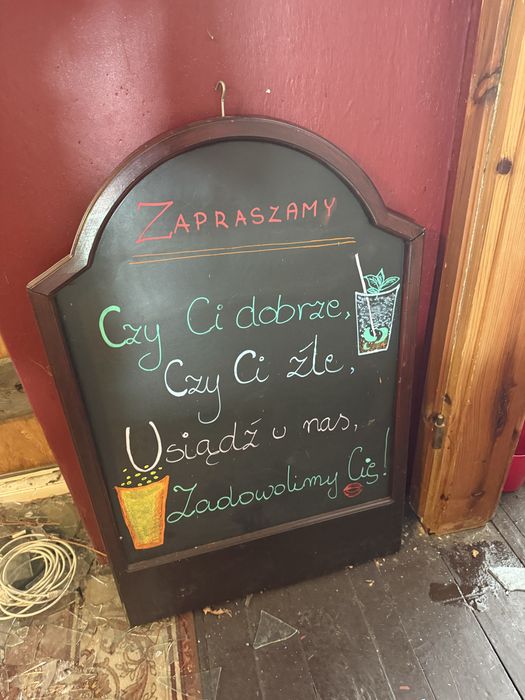 ZAPRASZAMY
Czy Ci dobrze,
Czy Ci źle,
Usiądź u nas,
Zadowolimy Cię!